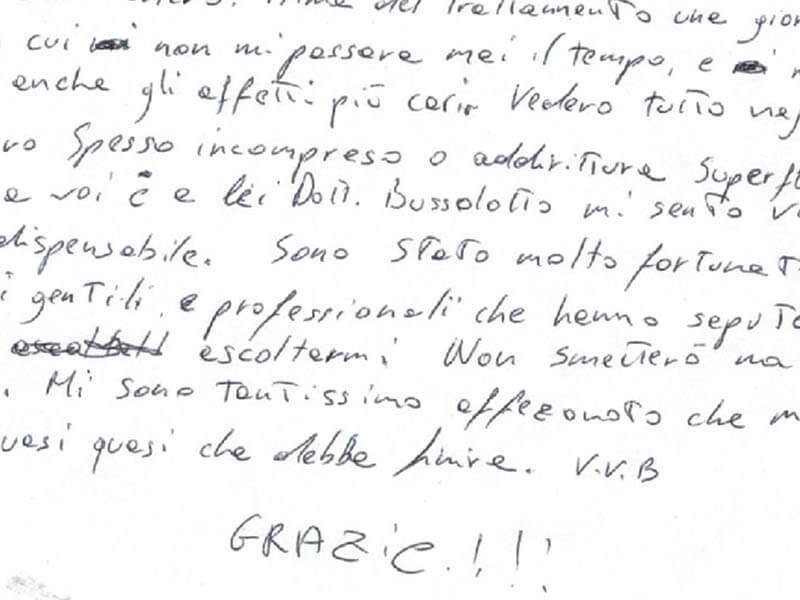 del Trattamento che
cui non mi passare mai il tempo, e
anche gli affetti più cari. Vedevo tutto
Spesso incompreso o addirittura Superf
voi è a lei Dott. Bussolotto mi sento
dispensabile. Sono Stato molto fortunat
gentili e professionali che hanno saputo
ascoltarmi Non smetterò ma
Mi sono Tantissimo affezonato che m
uasi quasi che debba finire. V.V.B
GRAZiE.!!!